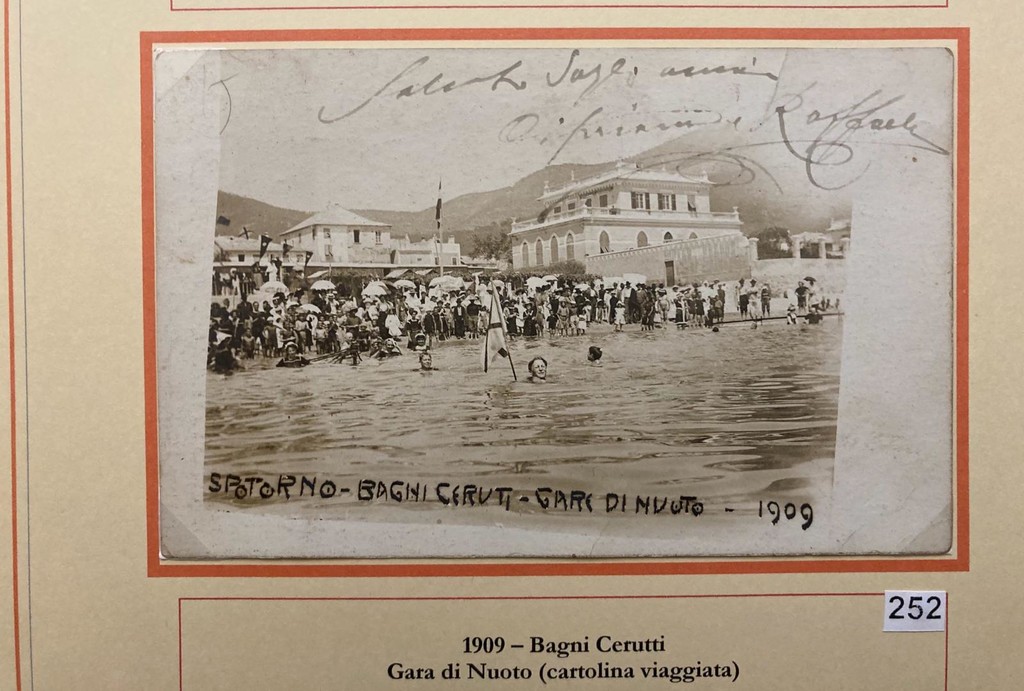 Saluti dagli amici
Raffaele
SPOTORNO - BAGNI CERUTI - GARE DI NUOTO - 1909
252
1909 – Bagni Cerutti
Gara di Nuoto (cartolina viaggiata)